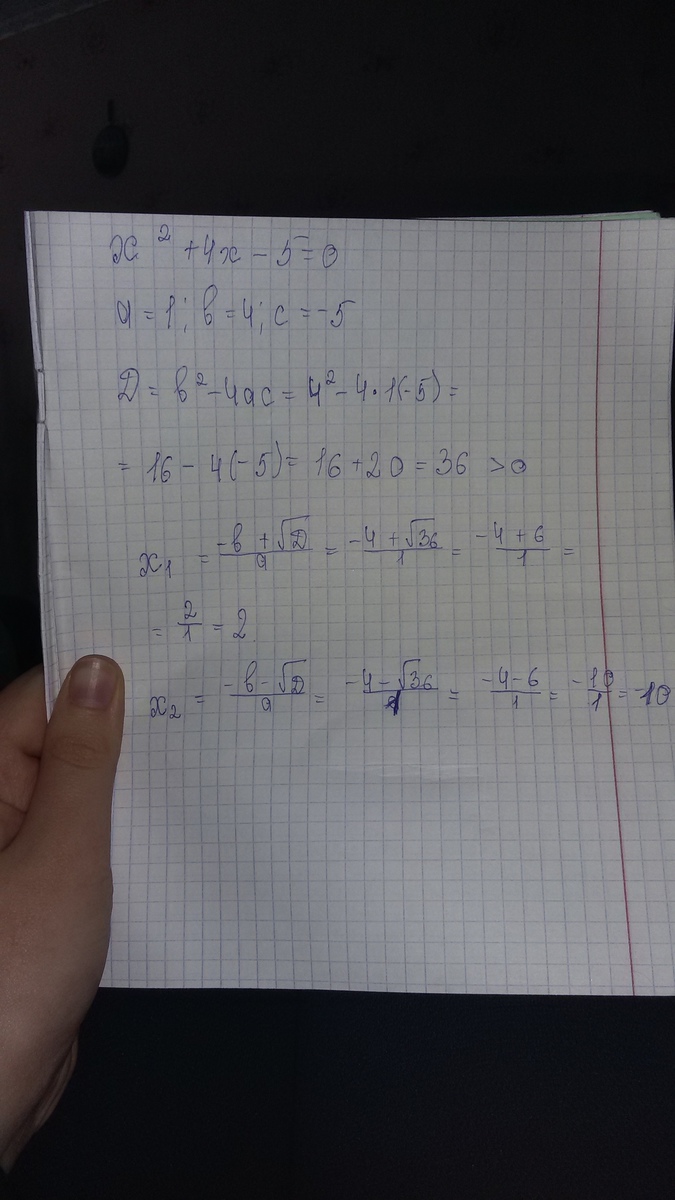 x² + 4x - 5 = 0
a = 1; в = 4; c = -5
Д = в² - 4ac = 4² - 4 · 1(-5) =
= 16 - 4(-5) = 16 + 20 = 36 > 0
x₁ = (-в + √Д)/a = (-4 + √36)/1 = (-4 + 6)/1 =
= 2/1 = 2.
x₂ = (-в - √Д)/a = (-4 - √36)/1 = (-4 - 6)/1 = -10/1 = -10